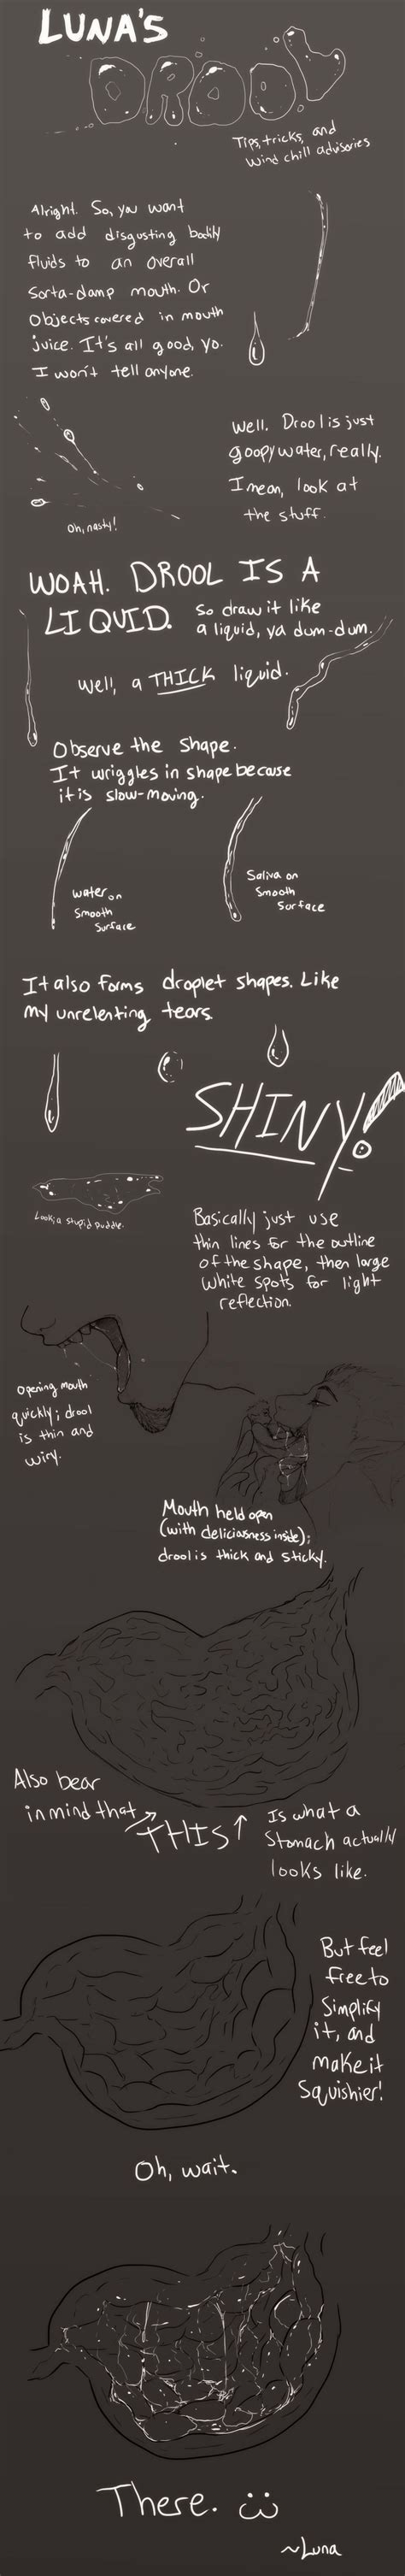 LUNA'S
DROOL
Tips, tricks, and
wind chill advisories
Alright. So, you want
to add disgusting bodily
fluids to an overall
sorta-damp mouth. Or
objects covered in mouth
juice. It's all good, yo.
I won't tell anyone.
Well. Drool is just
goopy water, really.
I mean, look at
the stuff.
Oh, nasty!
WOAH. DROOL IS A
LIQUID. So draw it like
a liquid, ya dum-dum.
Well, a THICK liquid.
Observe the shape.
It wriggles in shape because
it is slow-moving.
Water on
Smooth
Surface
Saliva on
Smooth
Surface
It also forms droplet shapes. Like
my unrelenting tears.
SHINY!
Look, a stupid puddle.
Basically just use
thin lines for the outline
of the shape, then large
white spots for light
reflection.
Opening mouth
quickly; drool
is thin and
wiry.
Mouth held open
(with deliciousness inside);
drool is thick and sticky.
Also bear
in mind that
THIS
Is what a
Stomach actually
looks like.
But feel
free to
Simplify
it, and
make it
Squishier!
Oh, wait.
There. :3
~Luna